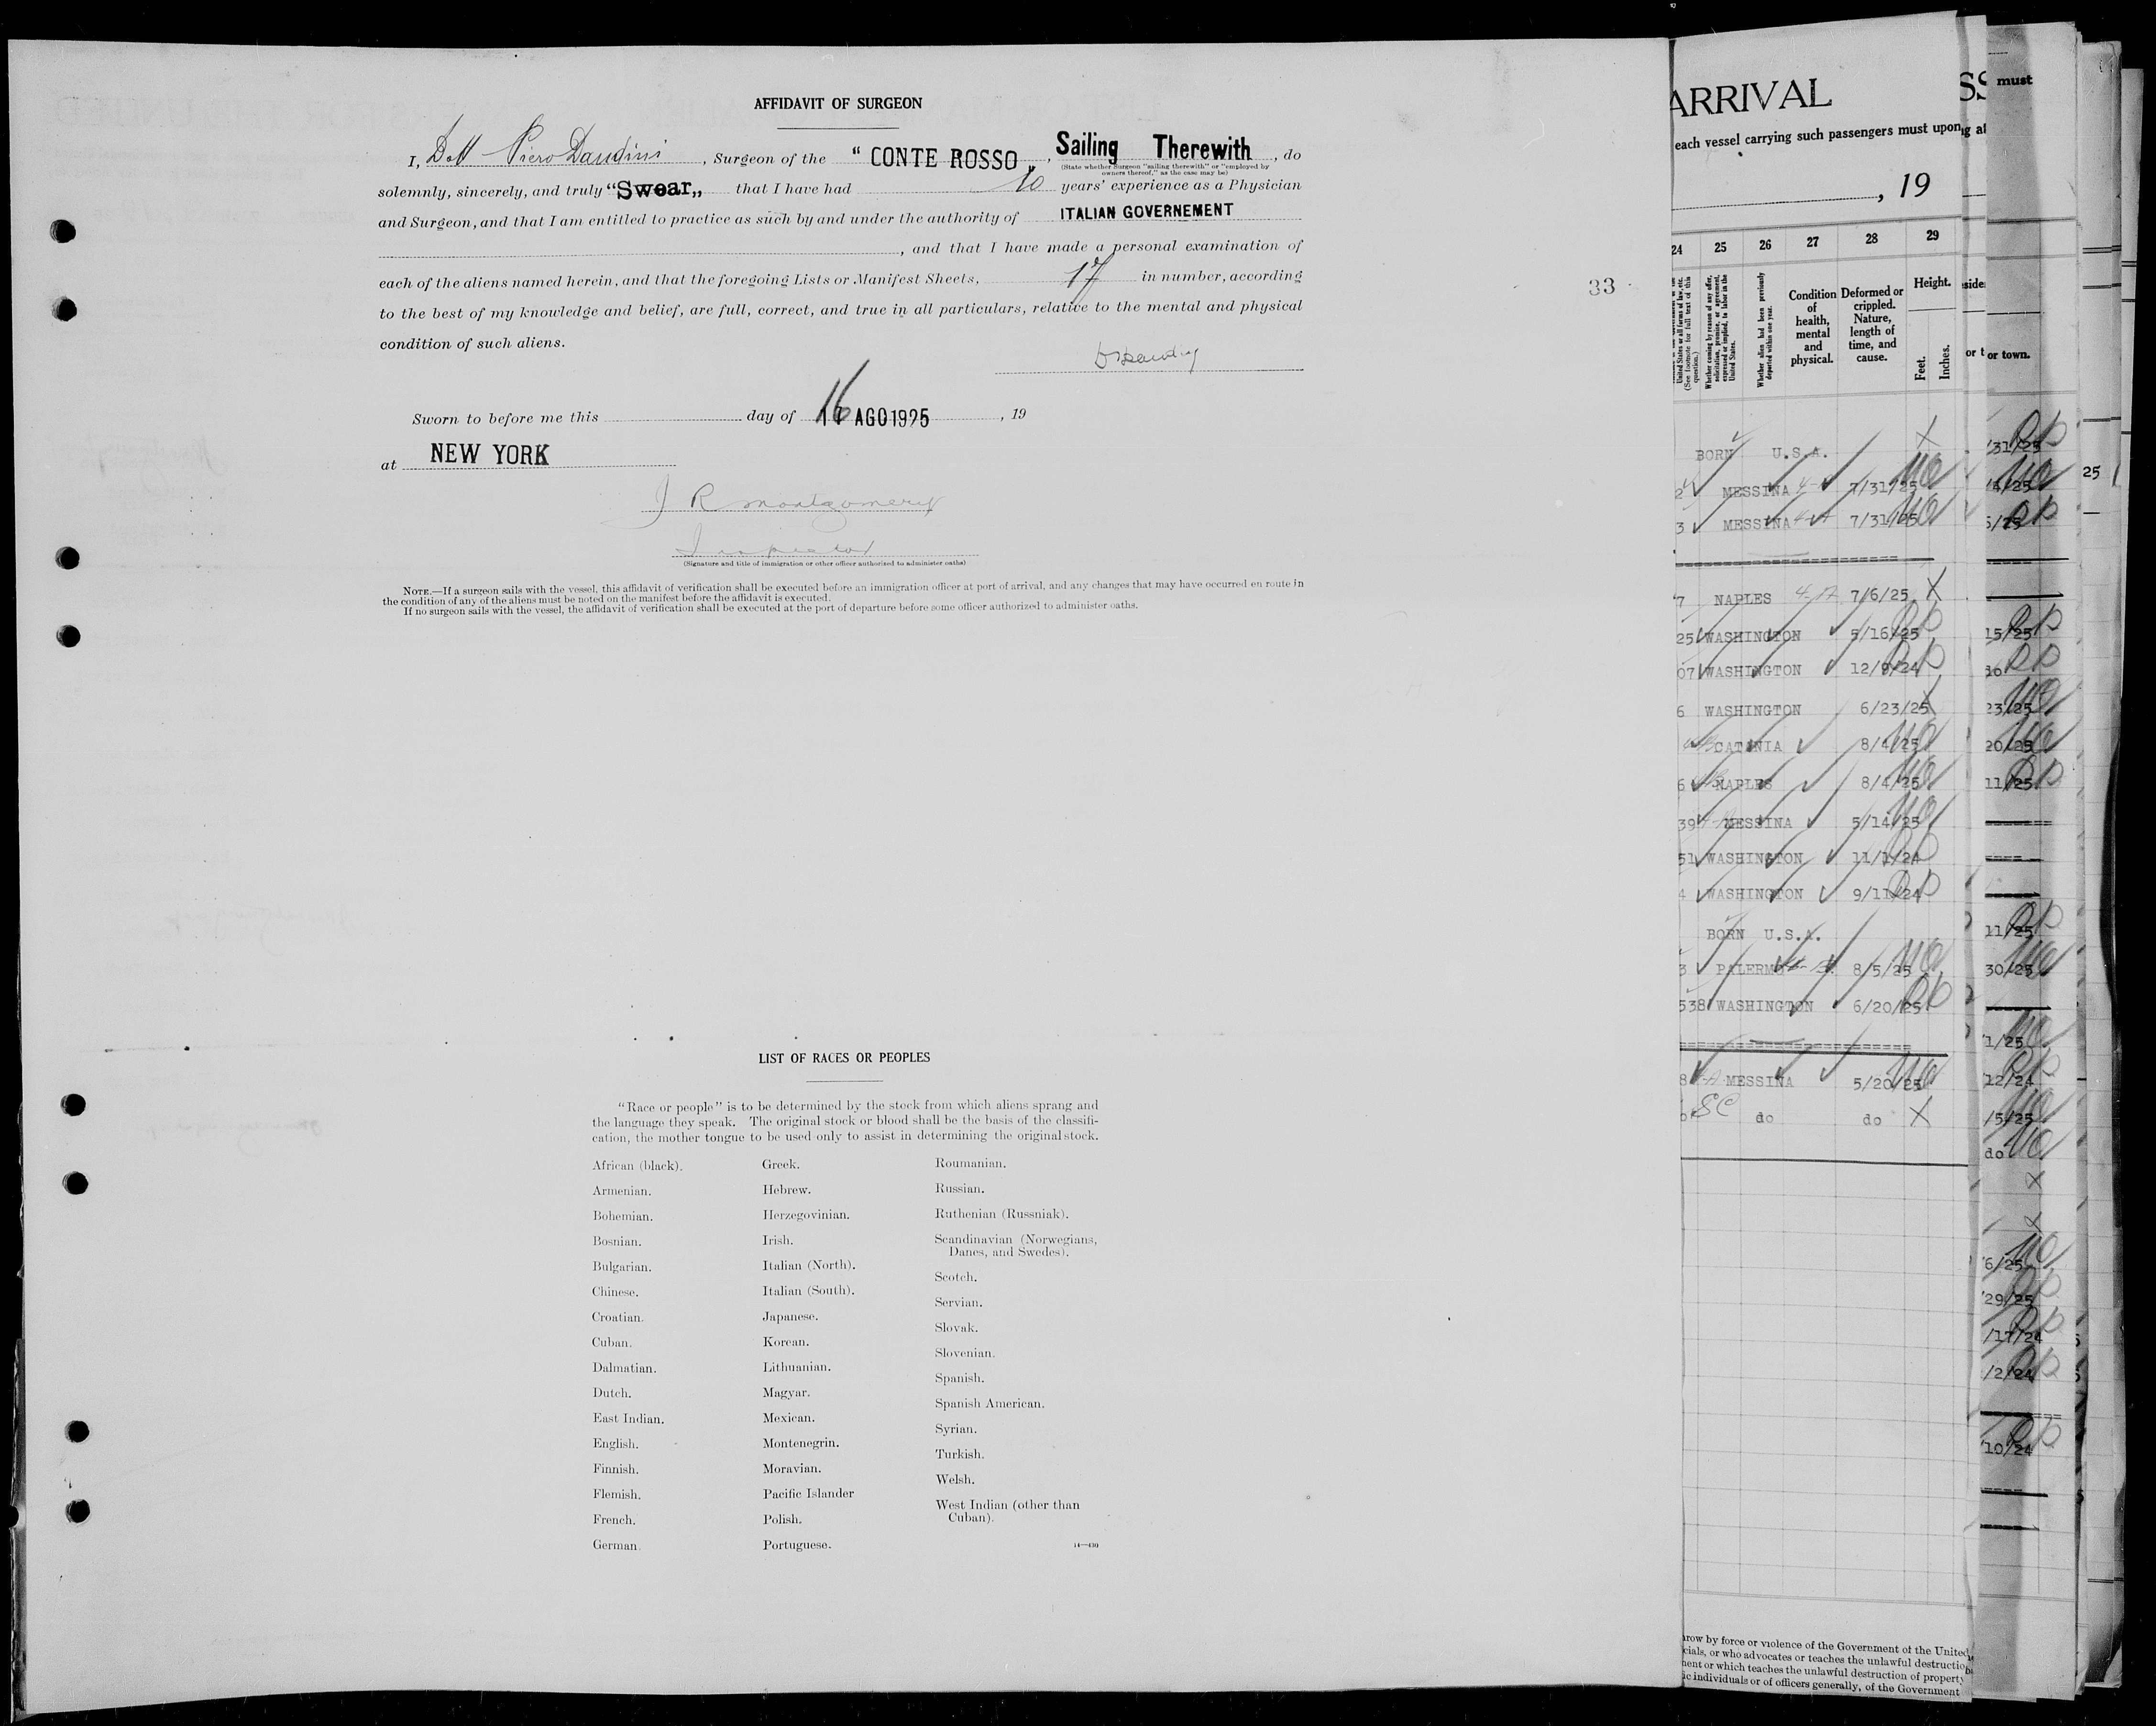 AFFIDAVIT OF SURGEON
I, Dott Piero Dandini, Surgeon of the "CONTE ROSSO", Sailing Therewith, do
(State whether Surgeon "sailing therewith" or "employed by
owners thereof," as the case may be)
solemnly, sincerely, and truly "Swear" that I have had 10 years' experience as a Physician
and Surgeon, and that I am entitled to practice as such by and under the authority of ITALIAN GOVERNEMENT
, and that I have made a personal examination of
each of the aliens named herein, and that the foregoing Lists or Manifest Sheets, 17 in number, according
to the best of my knowledge and belief, are full, correct, and true in all particulars, relative to the mental and physical
condition of such aliens.
Sworn to before me this day of 16 AGO 1925, 19
at NEW YORK
J R Montgomery
Inspector
(Signature and title of immigration or other officer authorized to administer oaths)
NOTE.—If a surgeon sails with the vessel, this affidavit of verification shall be executed before an immigration officer at port of arrival, and any changes that may have occurred en route in
the condition of any of the aliens must be noted on the manifest before the affidavit is executed.
If no surgeon sails with the vessel, the affidavit of verification shall be executed at the port of departure before some officer authorized to administer oaths.
33
LIST OF RACES OR PEOPLES
"Race or people" is to be determined by the stock from which aliens sprang and
the language they speak. The original stock or blood shall be the basis of the classifi-
cation, the mother tongue to be used only to assist in determining the original stock.
African (black).
Armenian.
Bohemian.
Bosnian.
Bulgarian.
Chinese.
Croatian.
Cuban.
Dalmatian.
Dutch.
East Indian.
English.
Finnish.
Flemish.
French.
German.
Greek.
Hebrew.
Herzegovinian.
Irish.
Italian (North).
Italian (South).
Japanese.
Korean.
Lithuanian.
Magyar.
Mexican.
Montenegrin.
Moravian.
Pacific Islander
Polish.
Portuguese.
Roumanian.
Russian.
Ruthenian (Russniak).
Scandinavian (Norwegians,
Danes, and Swedes).
Scotch.
Servian.
Slovak.
Slovenian.
Spanish.
Spanish American.
Syrian.
Turkish.
Welsh.
West Indian (other than
Cuban).
14—430
ARRIVAL
each vessel carrying such passengers must upon
, 19
24 25 26 27 28 29
United States or all forms of law, etc.
(See footnote for full text of this
question.)
Whether coming by reason of any offer,
solicitation, promise, or agreement,
expressed or implied, to labor in the
United States.
Whether alien had been previously
deported within one year.
Condition of health, mental and physical.
Deformed or crippled. Nature, length of time, and cause.
Height.
Feet.
Inches.
BORN U.S.A. X
2 MESSINA 7/31/25
3 MESSINA 7/31/25
7 NAPLES 4-A 7/6/25 X
25 WASHINGTON 5/16/25
07 WASHINGTON 12/9/24
6 WASHINGTON 6/23/25 X
CATANIA 8/4/25
6 NAPLES 8/4/25
39 MESSINA 5/14/25
51 WASHINGTON 11/1/24
4 WASHINGTON 9/11/24
BORN U.S.A.
3 PALERMO 8/5/25
538 WASHINGTON 6/20/25
8 MESSINA 5/20/25
SC do do X
row by force or violence of the Government of the United
cials, or who advocates or teaches the unlawful destruction
ment or which teaches the unlawful destruction of property
ic individuals or of officers generally, of the Government
must
or town.
/31/25
/4/25
5/25
15/25
do
23/25
20/25
11/25
11/25
30/25
1/25
12/24
/5/25
do
X
X
6/25
29/25
/17/24
/2/24
10/24
25